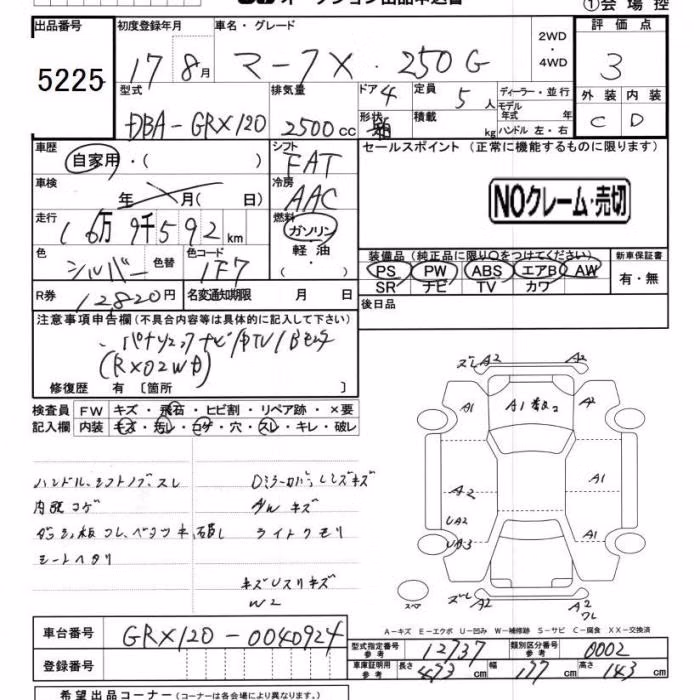 オークション出品申込書 ①会場控
出品番号 5225
初度登録年月 17 8月
車名・グレード マークX・250G
2WD・4WD
評価点 3
型式 DBA-GRX120
排気量 2500cc
ドア 4 形状 箱
定員 5人 積載 kg
ディーラー・並行
モデル年式 年
ハンドル 左・右
外装 C 内装 D
車歴 自家用・( )
シフト FAT
セールスポイント (正常に機能するものに限ります)
車検 年 月( 日)
冷房 AAC
NOクレーム・売切
走行 16万9千592km
燃料 ガソリン・軽油・
色 シルバー 色替 色コード 1F7
装備品 (純正品に限り○をつけてください) 新車保証書
PS PW ABS エアB AW
SR ナビ TV カワ
有・無
R券 12820円 名変通知期限 月 日
後日品
注意事項申告欄(不具合内容等は具体的に記入して下さい)
(RX02WD)
修復歴 有[箇所 ]
検査員記入欄
FW キズ・飛石・ヒビ割・リペア跡・×要
内装 キズ・汚レ・コゲ・穴・スレ・キレ・破レ
ハンドル、シフトノブ、スレ
内張コゲ
シートヘタリ
AW キズ
ライトクモリ
W2
ズレ A2 A2
A1 A1 A2
A2 A1
UA2
UA3 A1
スペア
ズレ A2 A2
ワレ
A-キズ E-エクボ U-凹み W-補修跡 S-サビ C-腐食 XX-交換済
車台番号 GRX120-0040924
型式指定番号 参考 12737 類別区分番号 参考 0002
登録番号
車庫証明用 参考 長さ 473cm 幅 177cm 高さ 143cm
希望出品コーナー (コーナーは各会場により異なります。)